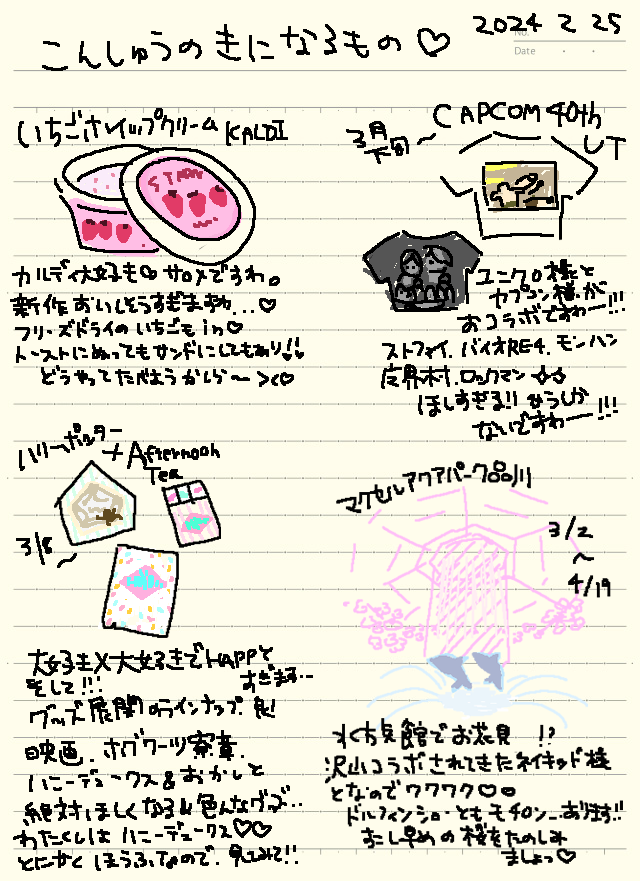 2024 2 25
No.
Date
こんしゅうの きに なるもの♡
いちごホイップクリーム KALDI
カルディ大好き♡ サロメですわ。
新作 おいしそうすぎますわ...♡
フリーズドライの いちごも in♡
トーストにぬっても サンドにしてもあり!!
どうやってたべようかしら〜 ><♡
3月下旬〜
CAPCOM 40th
UT
ユニクロ様と
カプコン様が
おコラボですわー!!!
ストファイ. バイオRE4. モンハン
魔界村. ロックマン
ほしすぎる!!
ないですわー!!!
ハリーポッター
+ Afternoon
Tea
3/8〜
大好き×大好きでHAPPY
すぎます...
そして!!!
グッズ展開のラインナップ. 良!
映画. ホグワーツ寮章.
ハニーデュークス&おかしと
絶対ほしくなる 色んなグッズ..
わたくしは ハニーデュークス♡♡
とにかく ほうふなので. 見てみて!!
マクセルアクアパーク品川
3/2
〜
4/19
水族館でお花見 !?
沢山コラボされてきたネイキッド様
となのでワクワク♡
ドルフィンショーとも モチロン...あります!!
すこし早めの桜をたのしみ
ましょっ♡